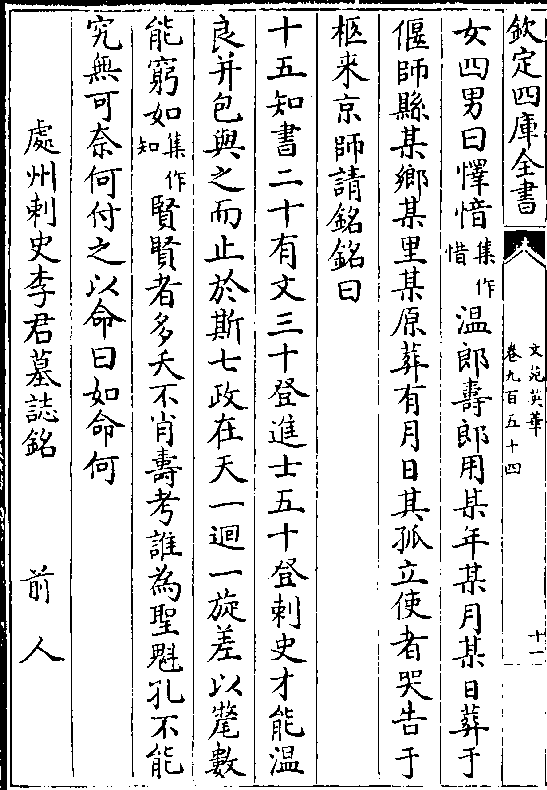 欽定四庫全書
文苑英華
卷九百五十四
十一
女四男曰懌愔集作惜温郎壽郎用某年某月某日葬于
偃師縣某鄉某里某原葬有月日其孤立使者哭告于
柩来京師請銘銘曰
十五知書二十有文三十登進士五十登刺史才能温
良并包與之而止於斯七政在天一迴一旋差以氂數
能窮如集作知賢賢者多夭不肖壽考誰為聖魁孔不能
究無可奈何付之以命曰如命何
處州刺史李君墓誌銘 前人